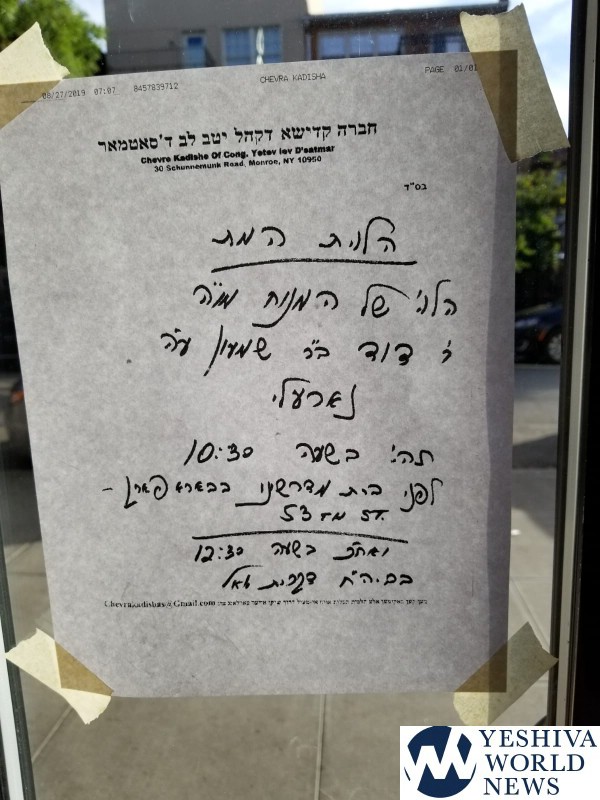 08/27/2019 07:07 8457839712 CHEVRA KADISHA PAGE 01/01
חברה קדישא דקהל יטב לב ד'סאטמאר
Chevre Kadishe Of Cong. Yetev lev D'satmar
30 Schunnemunk Road, Monroe, NY 10950
בס"ד
הלוית המת
הלוי' של המנוח מו"ה
ר' דוד ב"ר שמעון ע"ה
תהי' בשעה 10:30
לפני בית מדרשנו בבאראפארק -
53 ST.
ואח"כ בשעה 12:30
בב.ה"ח דקרית יואל
Chevrakadishas@Gmail.com
YESHIVA
WORLD
NEWS